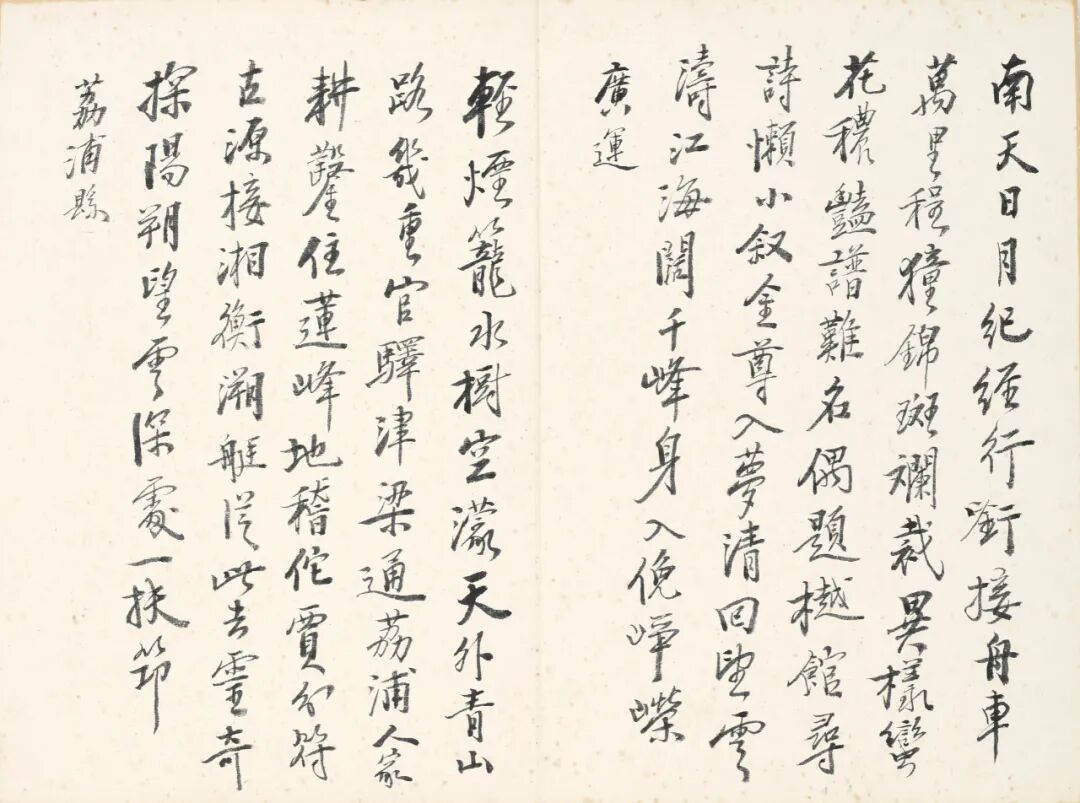 南天日月紀經行銜接舟車
萬里程獞錦斑斕裁異樣蠻
花穠豔譜難名偶題樾館尋
詩懶小叙金尊入夢清回望雲
濤江海闊千峰身入俛崢嶸
廣運
輕煙籠水樹空濛天外青山
路幾重官驛津梁通荔浦人家
耕鑿住蓮峰地稽佗賈分符
古源接湘衡溯艇從此去靈奇
探陽朔望雲深處一扶筇
荔浦縣